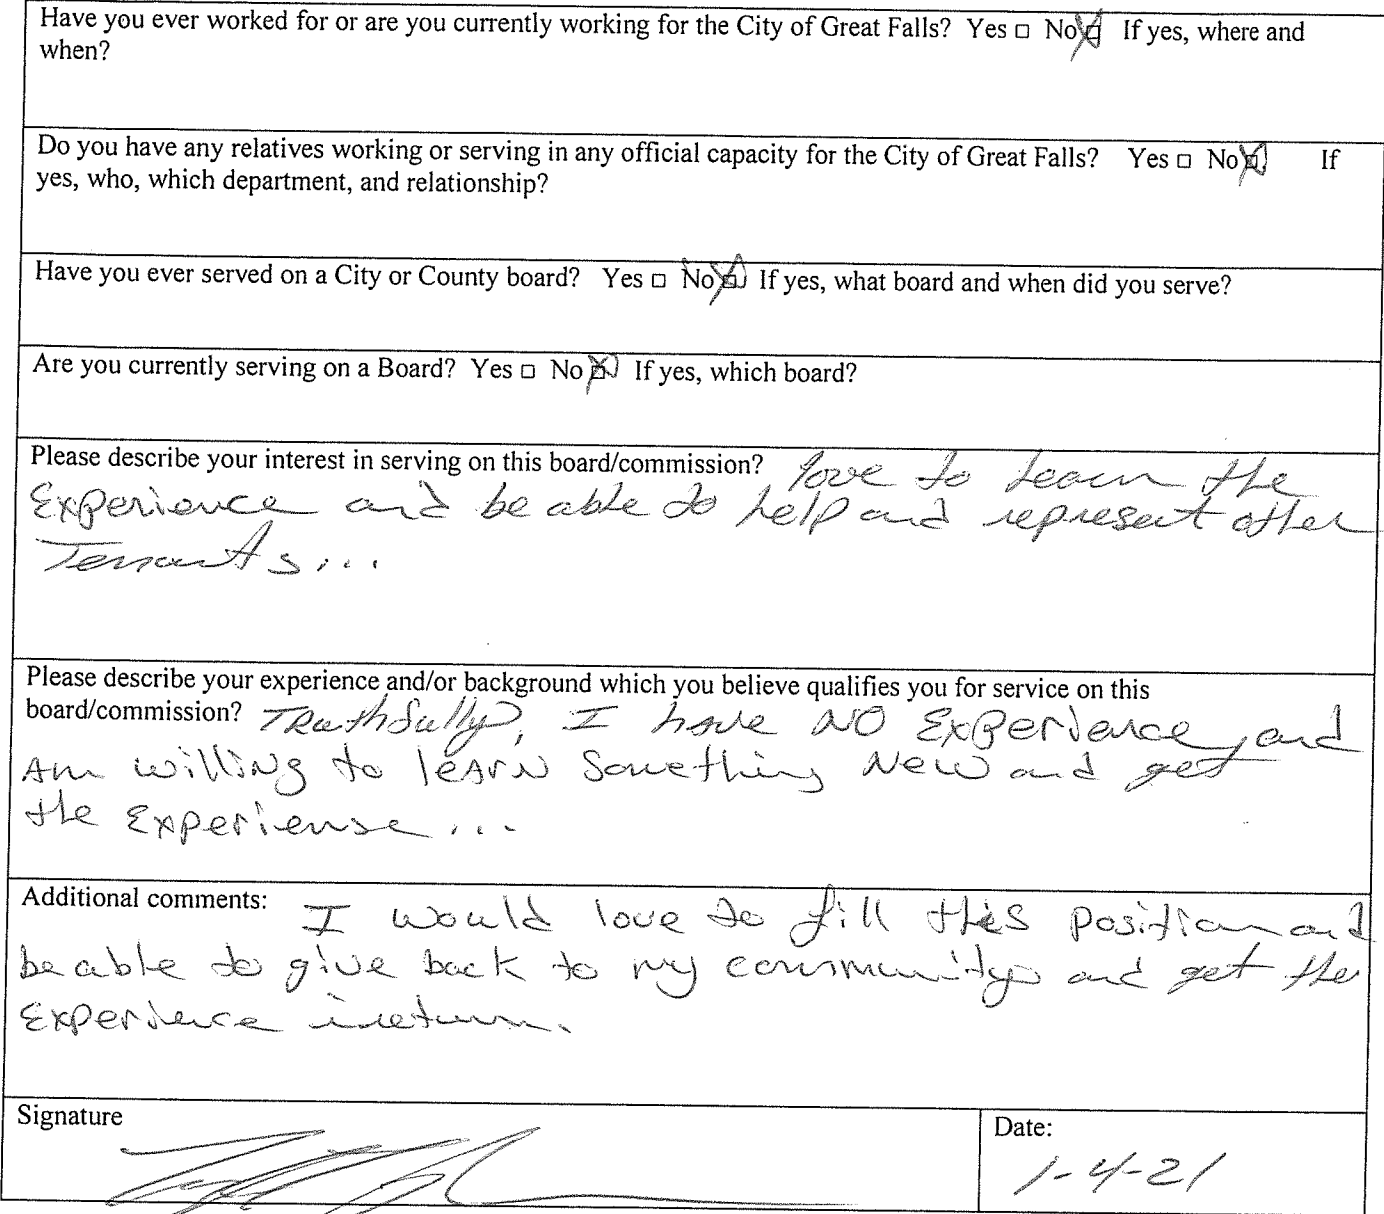 Have you ever worked for or are you currently working for the City of Great Falls? Yes □ No ☒ If yes, where and
when?
Do you have any relatives working or serving in any official capacity for the City of Great Falls? Yes □ No ☒ If
yes, who, which department, and relationship?
Have you ever served on a City or County board? Yes □ No ☒ If yes, what board and when did you serve?
Are you currently serving on a Board? Yes □ No ☒ If yes, which board?
Please describe your interest in serving on this board/commission? love to learn the
Experience and be able to help and represent other
Tenants...
Please describe your experience and/or background which you believe qualifies you for service on this
board/commission? Truthfully, I have NO Experience, and
Am willing to learn something New and get
the Experiense...
Additional comments: I would love to fill this position and
be able to give back to my community and get the
Experience in return.
Signature
Date:
1-4-21